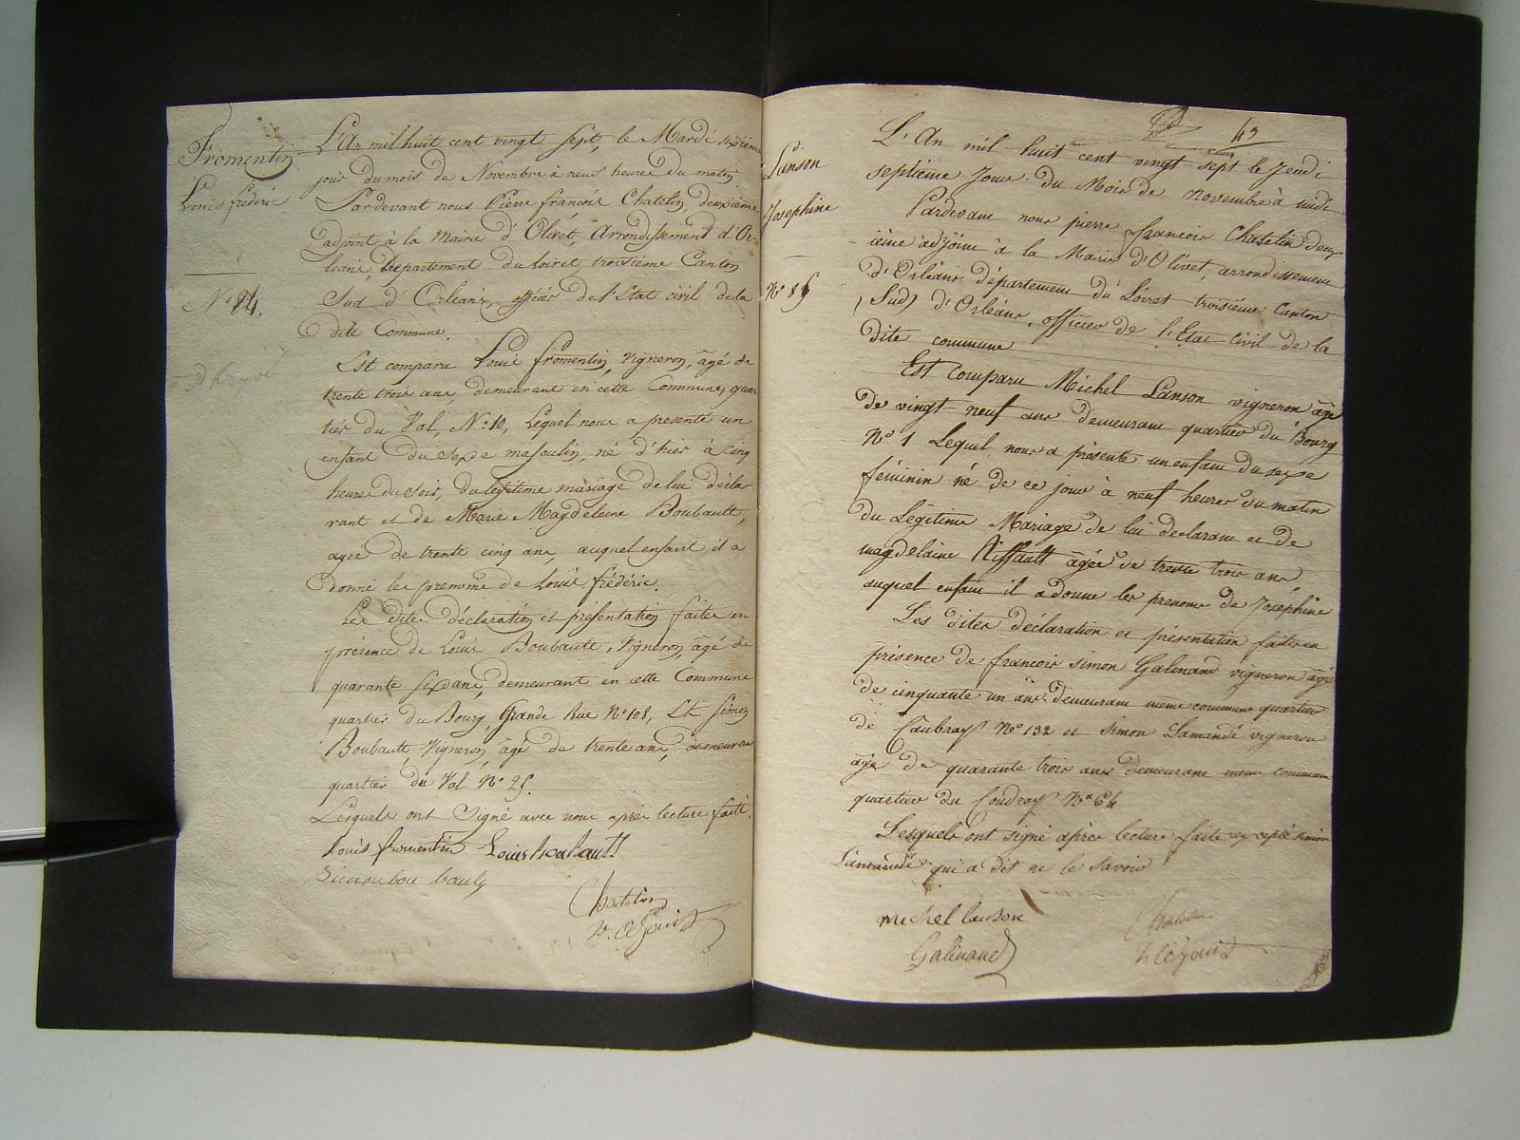 Fromentin
Louis frédéric
N° 84.
L'An mil huit cent vingt sept, le Mardi sixième
jour du mois de Novembre à neuf heures du matin
Pardevant nous Pierre françois Chatelin, deuxième
adjoint à la Mairie d'Olivet, Arrondissement d'Or-
léans, Département du Loiret troisième Canton
Sud d'Orléans, officier de l'Etat civil de la
dite Commune.
Est comparu Louis fromentin, Vigneron, âgé de
trente trois ans, demeurant en cette Commune, quar
tier du Val, N° 10, Lequel nous a présenté un
enfant du Sexe masculin, né d'hier à cinq
heures du Soir, du légitime mariage de lui décla
rant et de Marie Magdeleine Boubault,
agée de trente cinq ans, auquel enfant il a
donné les prénoms de Louis frédéric.
Les dites déclaration et présentation faites en
présence de Louis Boubault, Vigneron, âgé de
quarante six ans, demeurant en cette Commune
quartier du Bourg, Grande Rue N° 108, Et Simon
Boubault, Vigneron, âgé de trente ans, demeurant
quartier du Val N° 25.
Lesquels ont Signé avec nous après lecture faite.
Louis fromentin Louis boubault
Chatelin
Lanson
Josephine
N° 85
43
L'An mil huit cent vingt sept le Jeudi
septième Jour du Mois de novembre à midi
Pardevant nous pierre françois Chatelin deux
ième adjoint à la Mairie d'Olivet, arrondissement
d'Orléans département du Loiret troisième Canton
(Sud) d'Orléans, officier de l'Etat Civil de la
dite commune
Est Comparu Michel Lanson vigneron âgé
de vingt neuf ans demeurant quartier du Bourg
N° 1 Lequel nous a présenté un enfant du sexe
féminin né de ce jour à neuf heures du matin
du Légitime Mariage de lui déclarant et de
magdelaine Riffault agée de trente trois ans
auquel enfant il a donné les prenoms de Joséphine
Les dites déclaration et présentation faites en
présence de françois simon Galinand vigneron âgé
de cinquante un ans demeurant meme commune quartier
de Caubray N° 132 et Simon Lamandé vigneron
âgé de quarante trois ans demeurant meme commune
quartier du Coudray N° 64
Lesquels ont signé après lecture faite excepté simon
Lamandé qui a dit ne le savoir
michel lanson Chatelin
Galinand